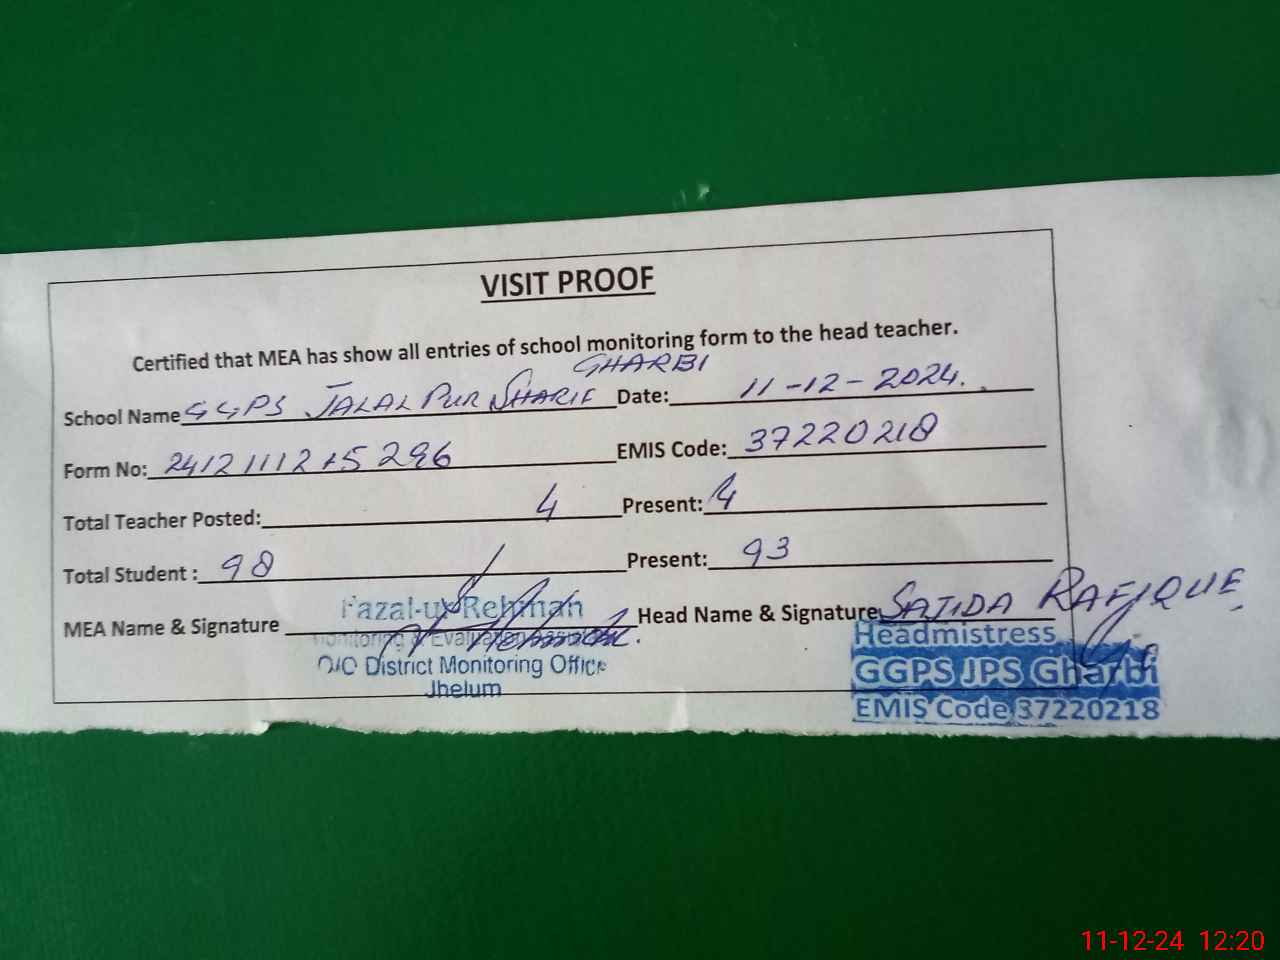 VISIT PROOF
Certified that MEA has show all entries of school monitoring form to the head teacher.
GHARBI
School Name GGPS JALAL PUR SHARIF Date: 11-12-2024.
Form No: 2412111215296 EMIS Code: 37220218
Total Teacher Posted: 4 Present: 4
Total Student : 98 Present: 93
MEA Name & Signature Fazal-ur-Rehman Head Name & Signature SAJIDA RAFIQUE
Monitoring & Evaluation Assistant Headmistress
O/O District Monitoring Office GGPS JPS Gharbi
Jhelum EMIS Code 37220218
11-12-24 12:20